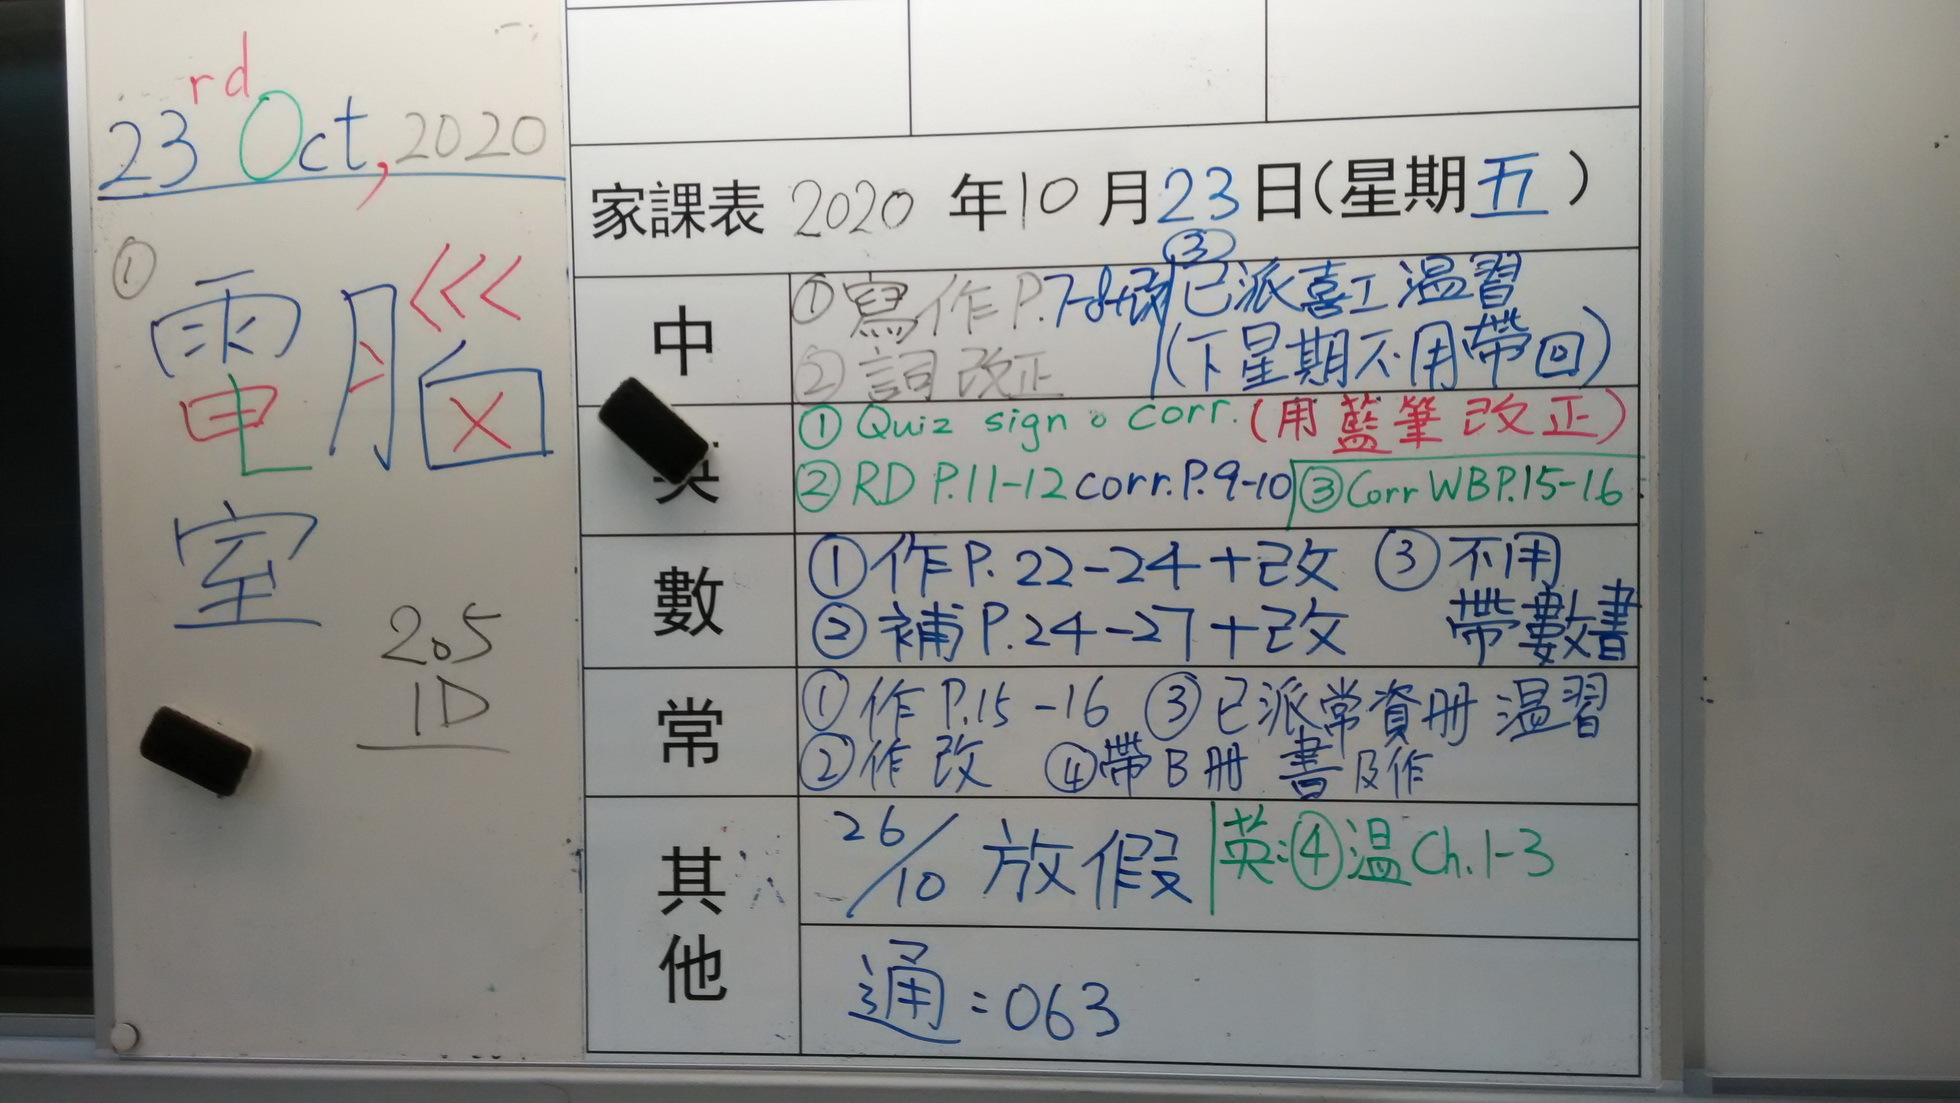 23rd Oct, 2020
① 電腦
室
205
1D
家課表 2020 年 10 月 23 日(星期五)
中
① 寫作 P.7-8+改
② 詞改正
③ 已派喜工温習
(下星期不用帶回)
英
① Quiz sign。corr. (用藍筆改正)
② RD P.11-12 corr. P.9-10 ③ Corr WB P.15-16
數
① 作 P. 22-24 + 改 ③ 不用
② 補 P. 24-27 + 改 帶數書
常
① 作 P.15-16 ③ 已派常資冊 温習
② 作改 ④ 帶B冊 書及作
其他
26/10 放假 英:④ 温 Ch.1-3
通:063